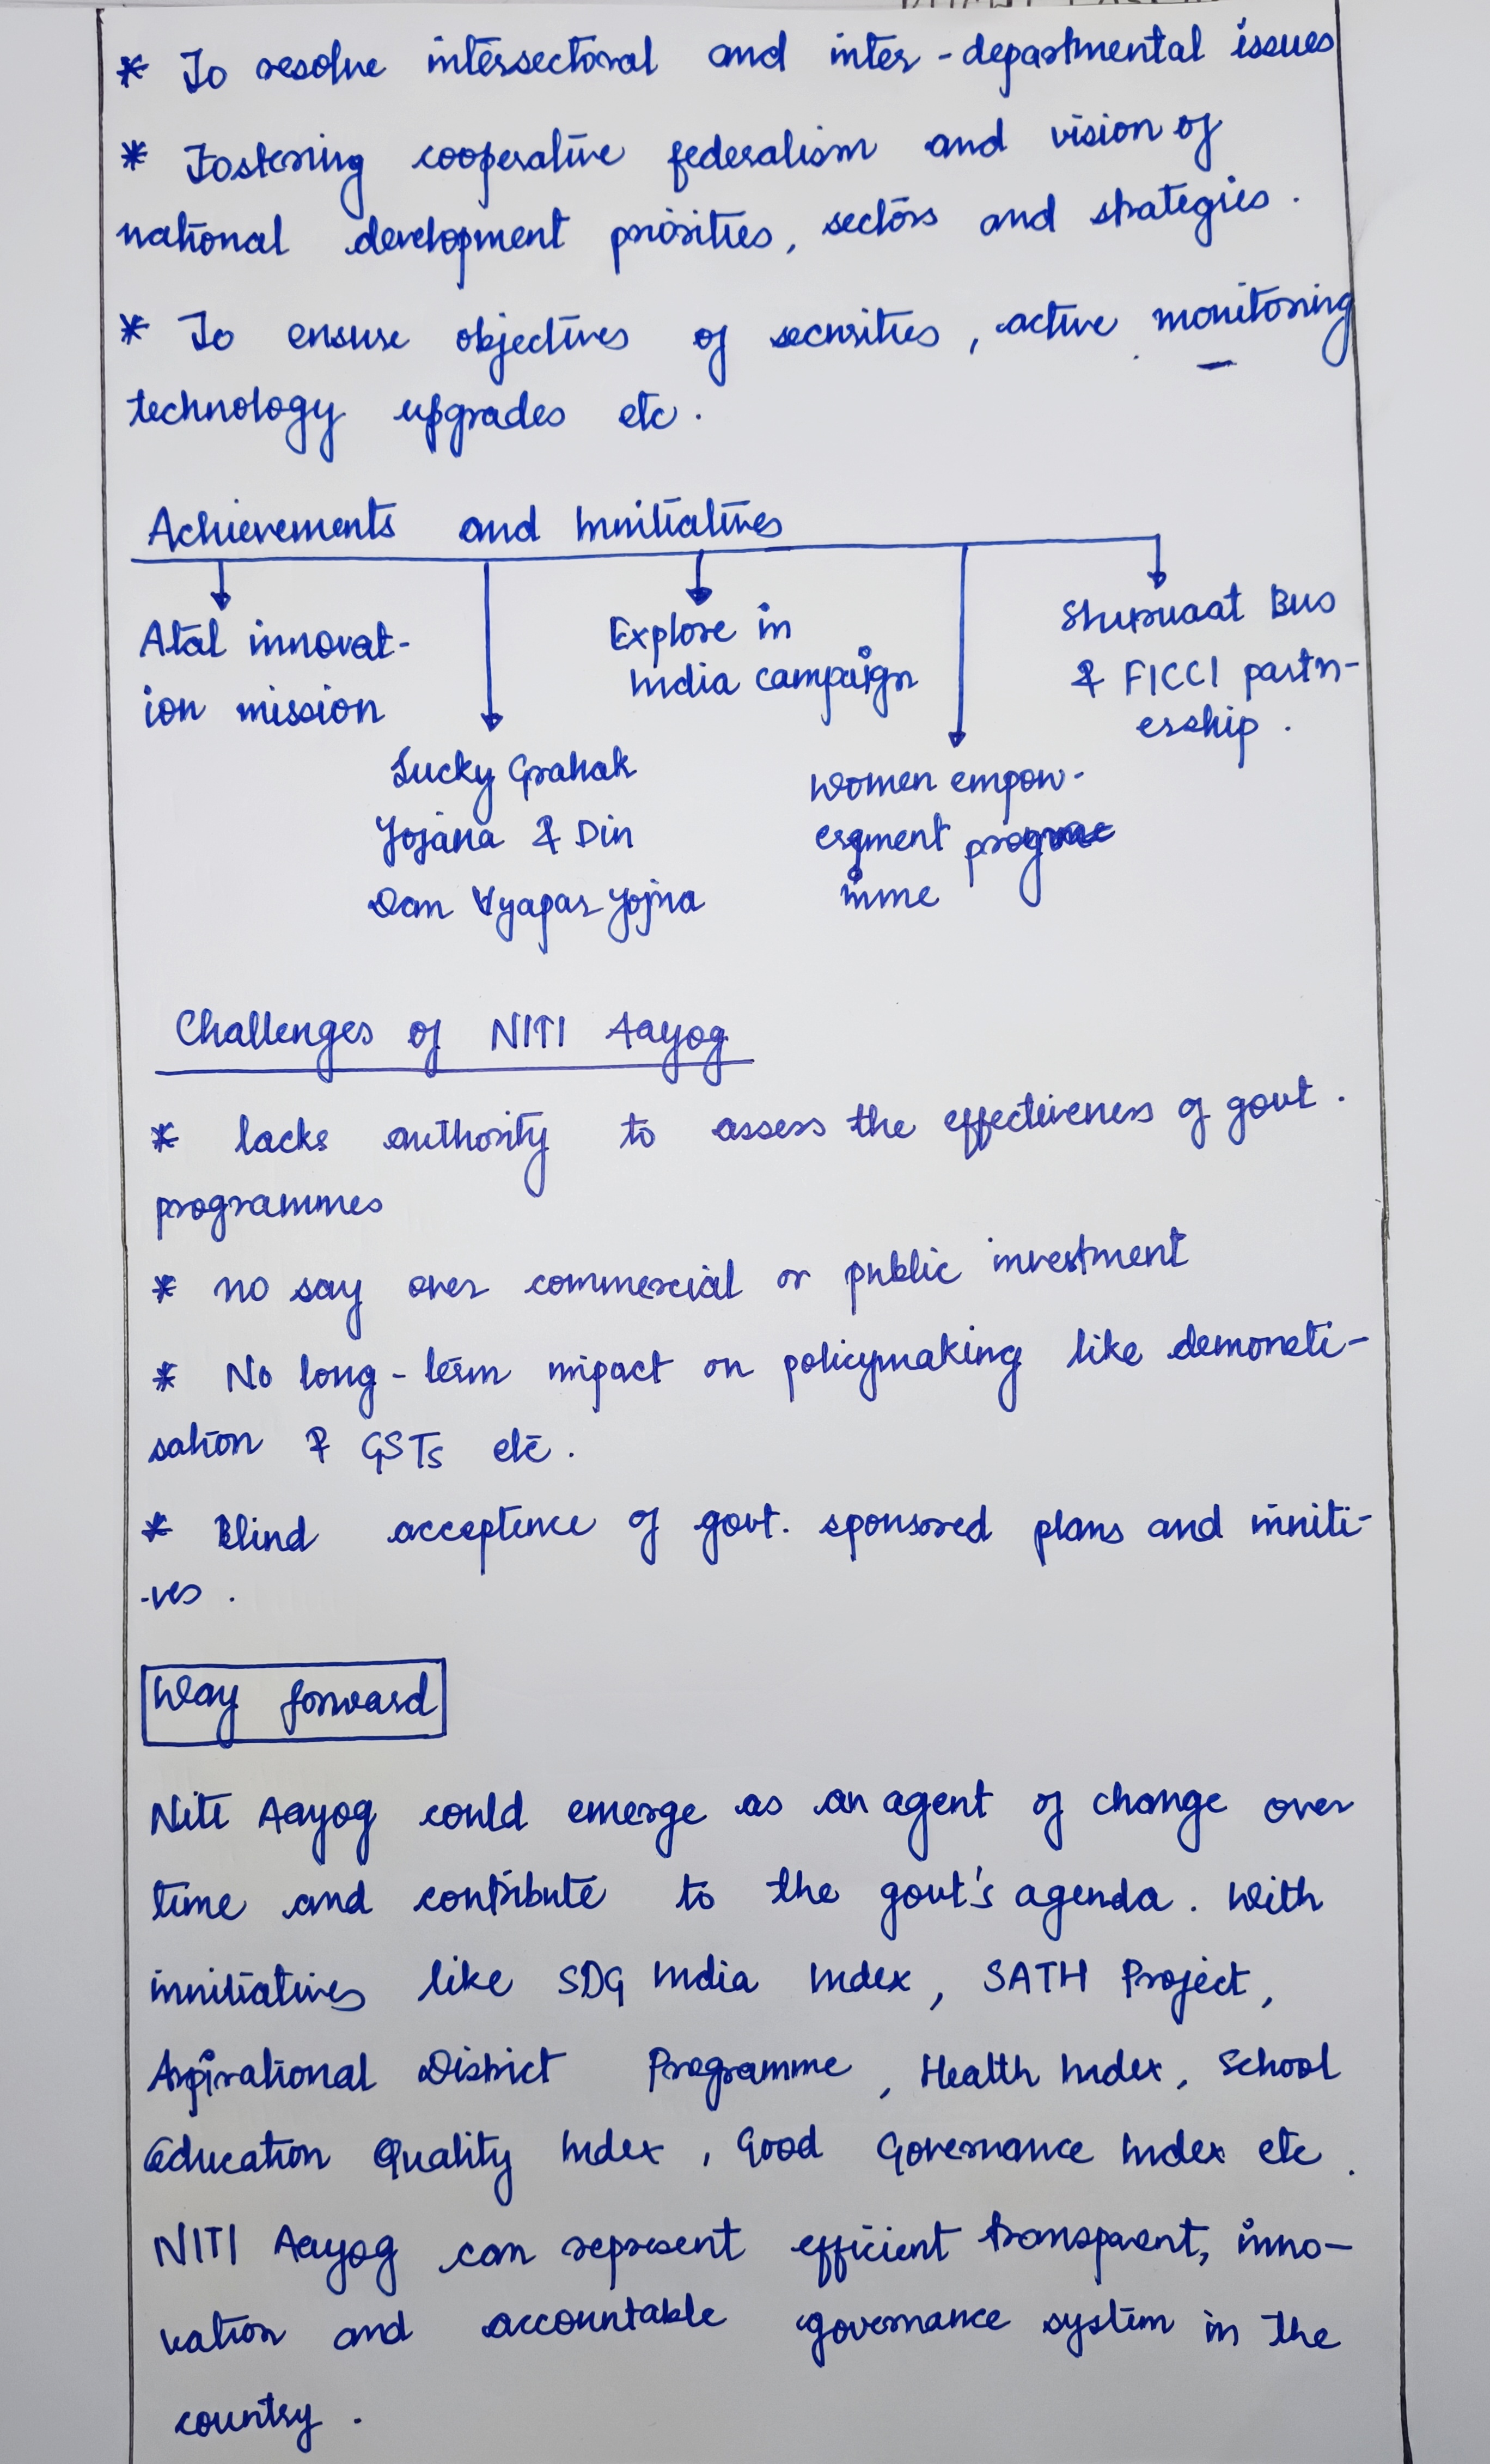 * To resolve intersectoral and inter-departmental issues
* Fostering cooperative federalism and vision of
national development priorities, sectors and strategies.
* To ensure objectives of securities, active monitoring
technology upgrades etc.
Achievements and Innitiatives
Atal innovat-
ion mission
Lucky Grahak
Yojana & Din
Dan Vyapar Yojna
Explore in
India campaign
Women empow-
erment programme
mme
Shuruaat Bus
& FICCI partn-
ership.
Challenges of NITI Aayog
* lacks authority to assess the effectiveness of govt.
programmes
* no say over commercial or public investment
* No long-term impact on policymaking like demoneti-
sation & GSTs etc.
* Blind acceptence of govt. sponsored plans and inniti-
-ves.
Way forward
Niti Aayog could emerge as an agent of change over
time and contribute to the govt's agenda. With
innitiatives like SDG India Index, SATH Project,
Aspirational District Programme, Health Index, School
Education Quality Index, Good Governance Index etc.
NITI Aayog can represent efficient transparent, inno-
vation and accountable governance system in the
country.